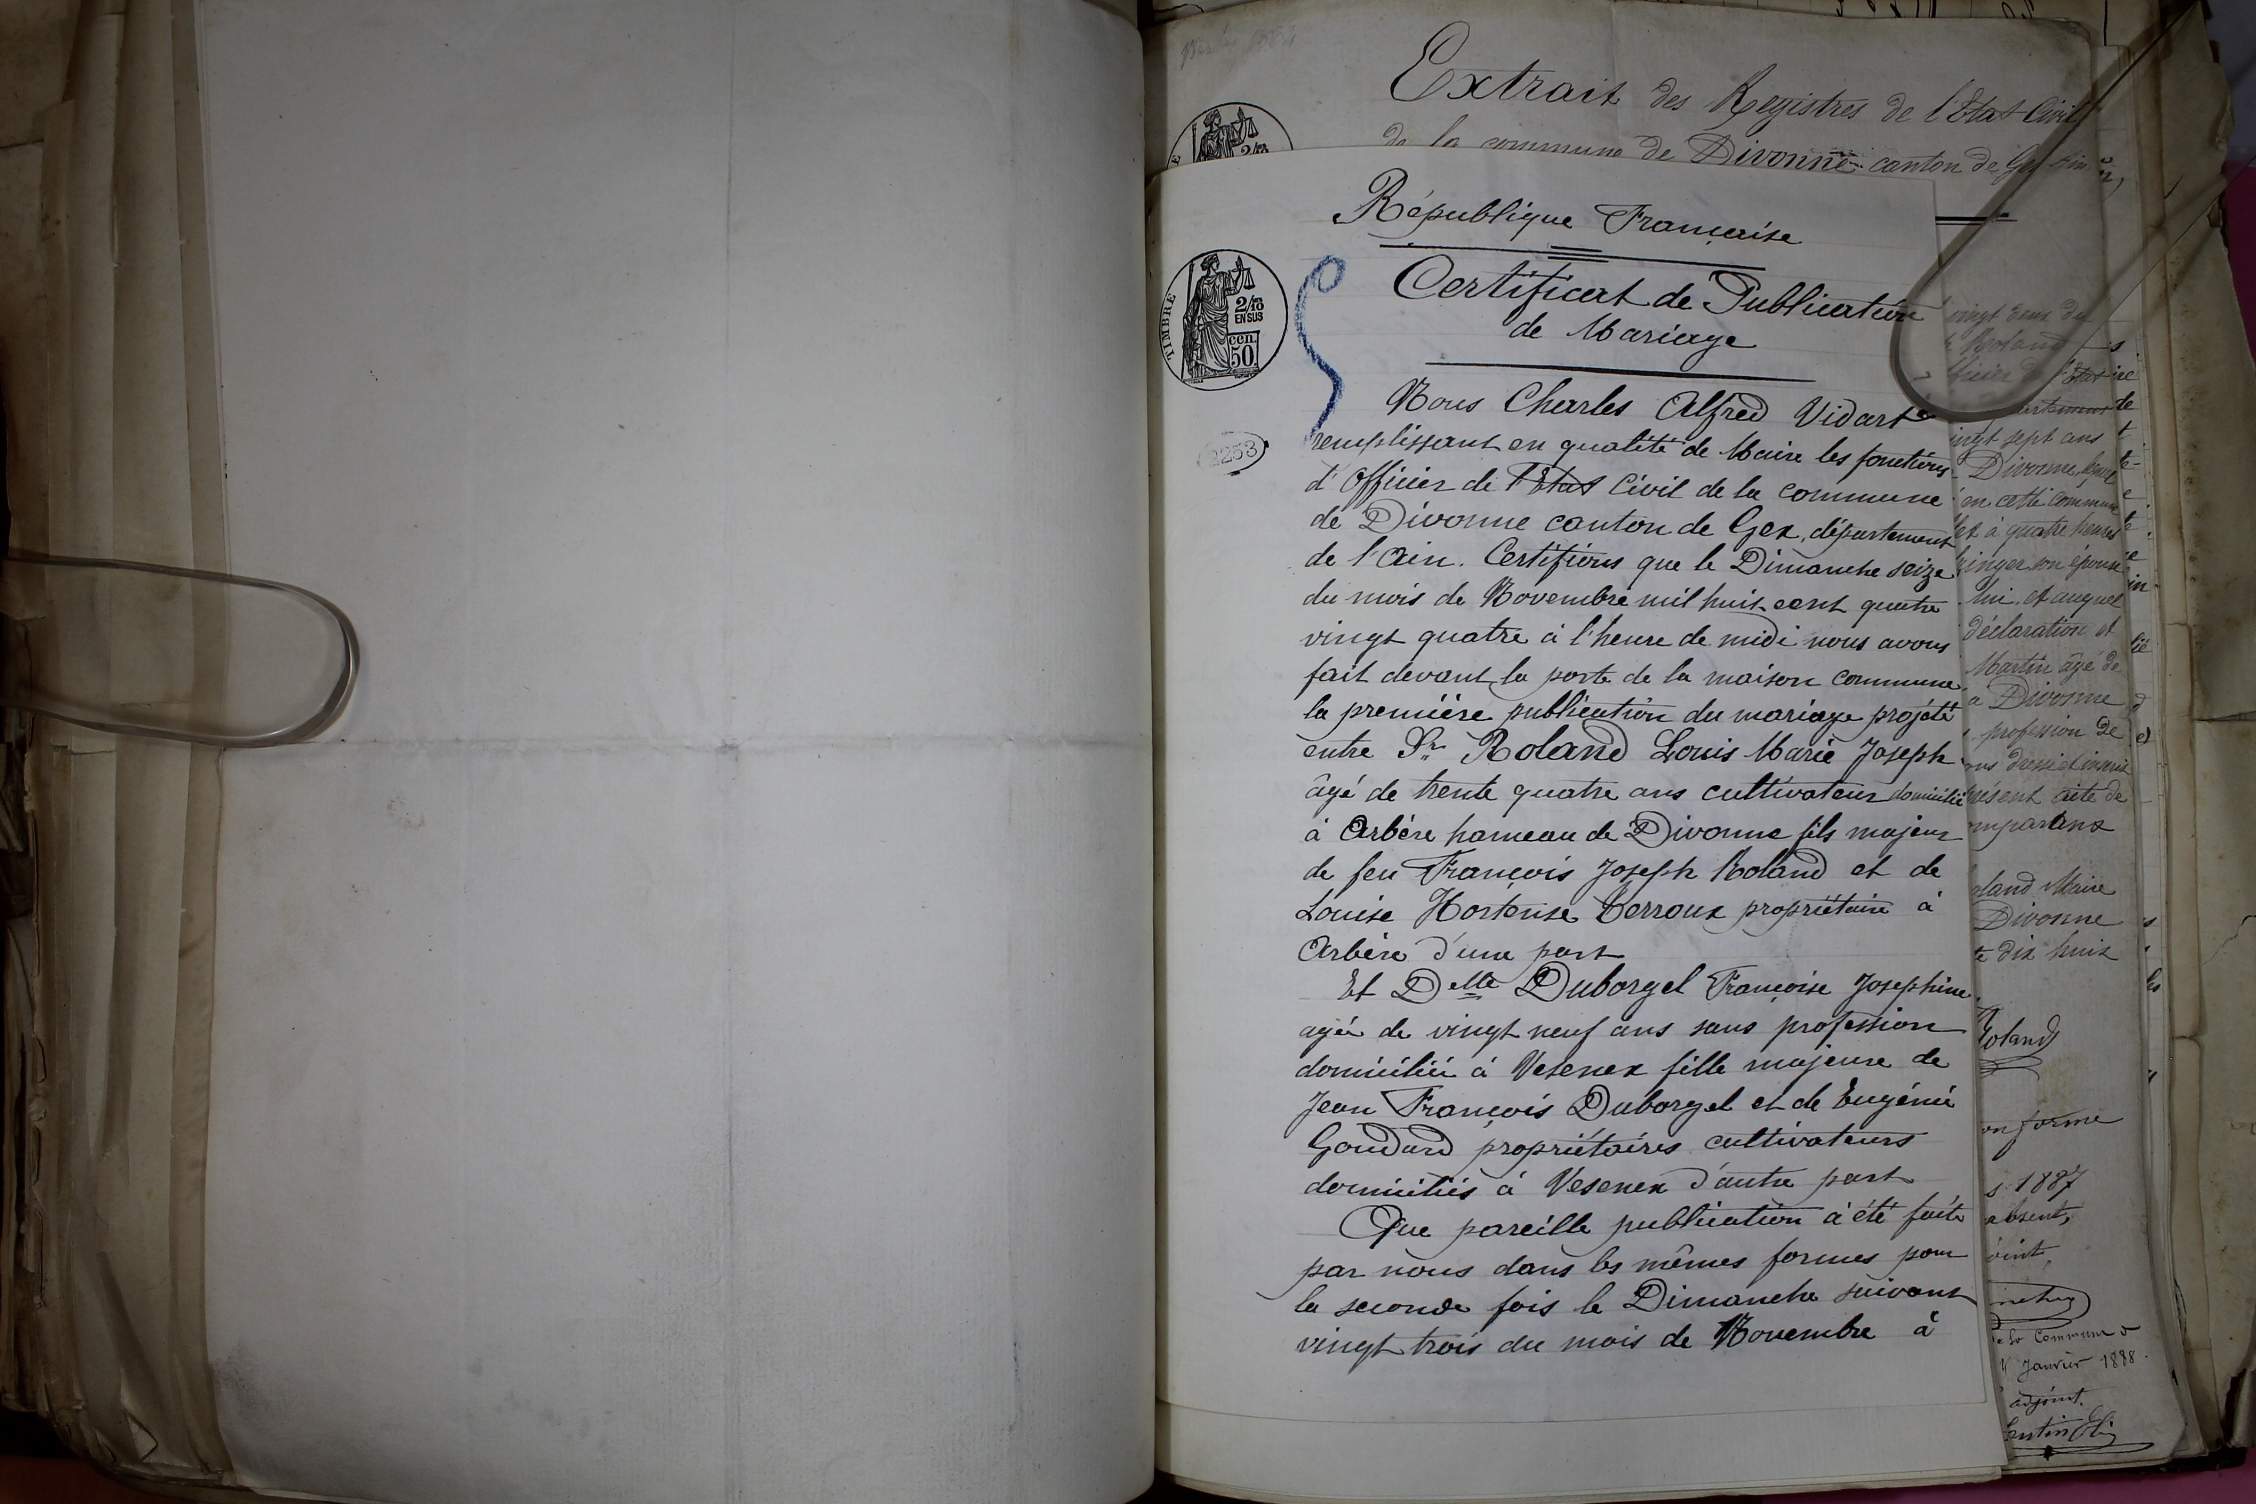 Extrait des Registres de l'Etat Civil
de la commune de Divonne canton de Gex
République Française
Certificat de Publication
de Mariage
TIMBRE
2/10
EN SUS
50 cen.
2253
Nous Charles Alfred Vidart
remplissant en qualité de Maire les fonctions
d'Officier de l'Etat Civil de la commune
de Divonne canton de Gex, département
de l'Ain. Certifions que le Dimanche seize
du mois de Novembre mil huit cent quatre
vingt quatre à l'heure de midi nous avons
fait devant la porte de la maison commune,
la première publication du mariage projeté
entre Sr. Roland Louis Marie Joseph
âgé de trente quatre ans cultivateur domicilié
à Arbère hameau de Divonne fils majeur
de feu François Joseph Roland et de
Louise Hortense Terroux propriétaire à
Arbère d'une part
Et Delle Duborgel Françoise Josephine
agée de vingt neuf ans sans profession
domiciliée à Vesenex fille majeure de
Jean François Duborgel et de Eugénie
Goudard propriétaires cultivateurs
domiciliés à Vesenex d'autre part
Que pareille publication à été faite
par nous dans les mêmes formes pour
la seconde fois le Dimanche suivant
vingt trois du mois de Novembre à
vingt deux du
Roland
l'Etat
ingt sept ans
Divonne, lequel
en cette commune
et à quatre heures
inger son épouse
lui, et auquel
déclaration et
Martin âgé de
à Divonne
profession de
ons dressé et inscrit
présent acte de
omparant
oland Maire
Divonne
te dix huit
Roland
onforme
s 1887
absent,
oint,
de la Commune
Janvier 1888.
adjoint.